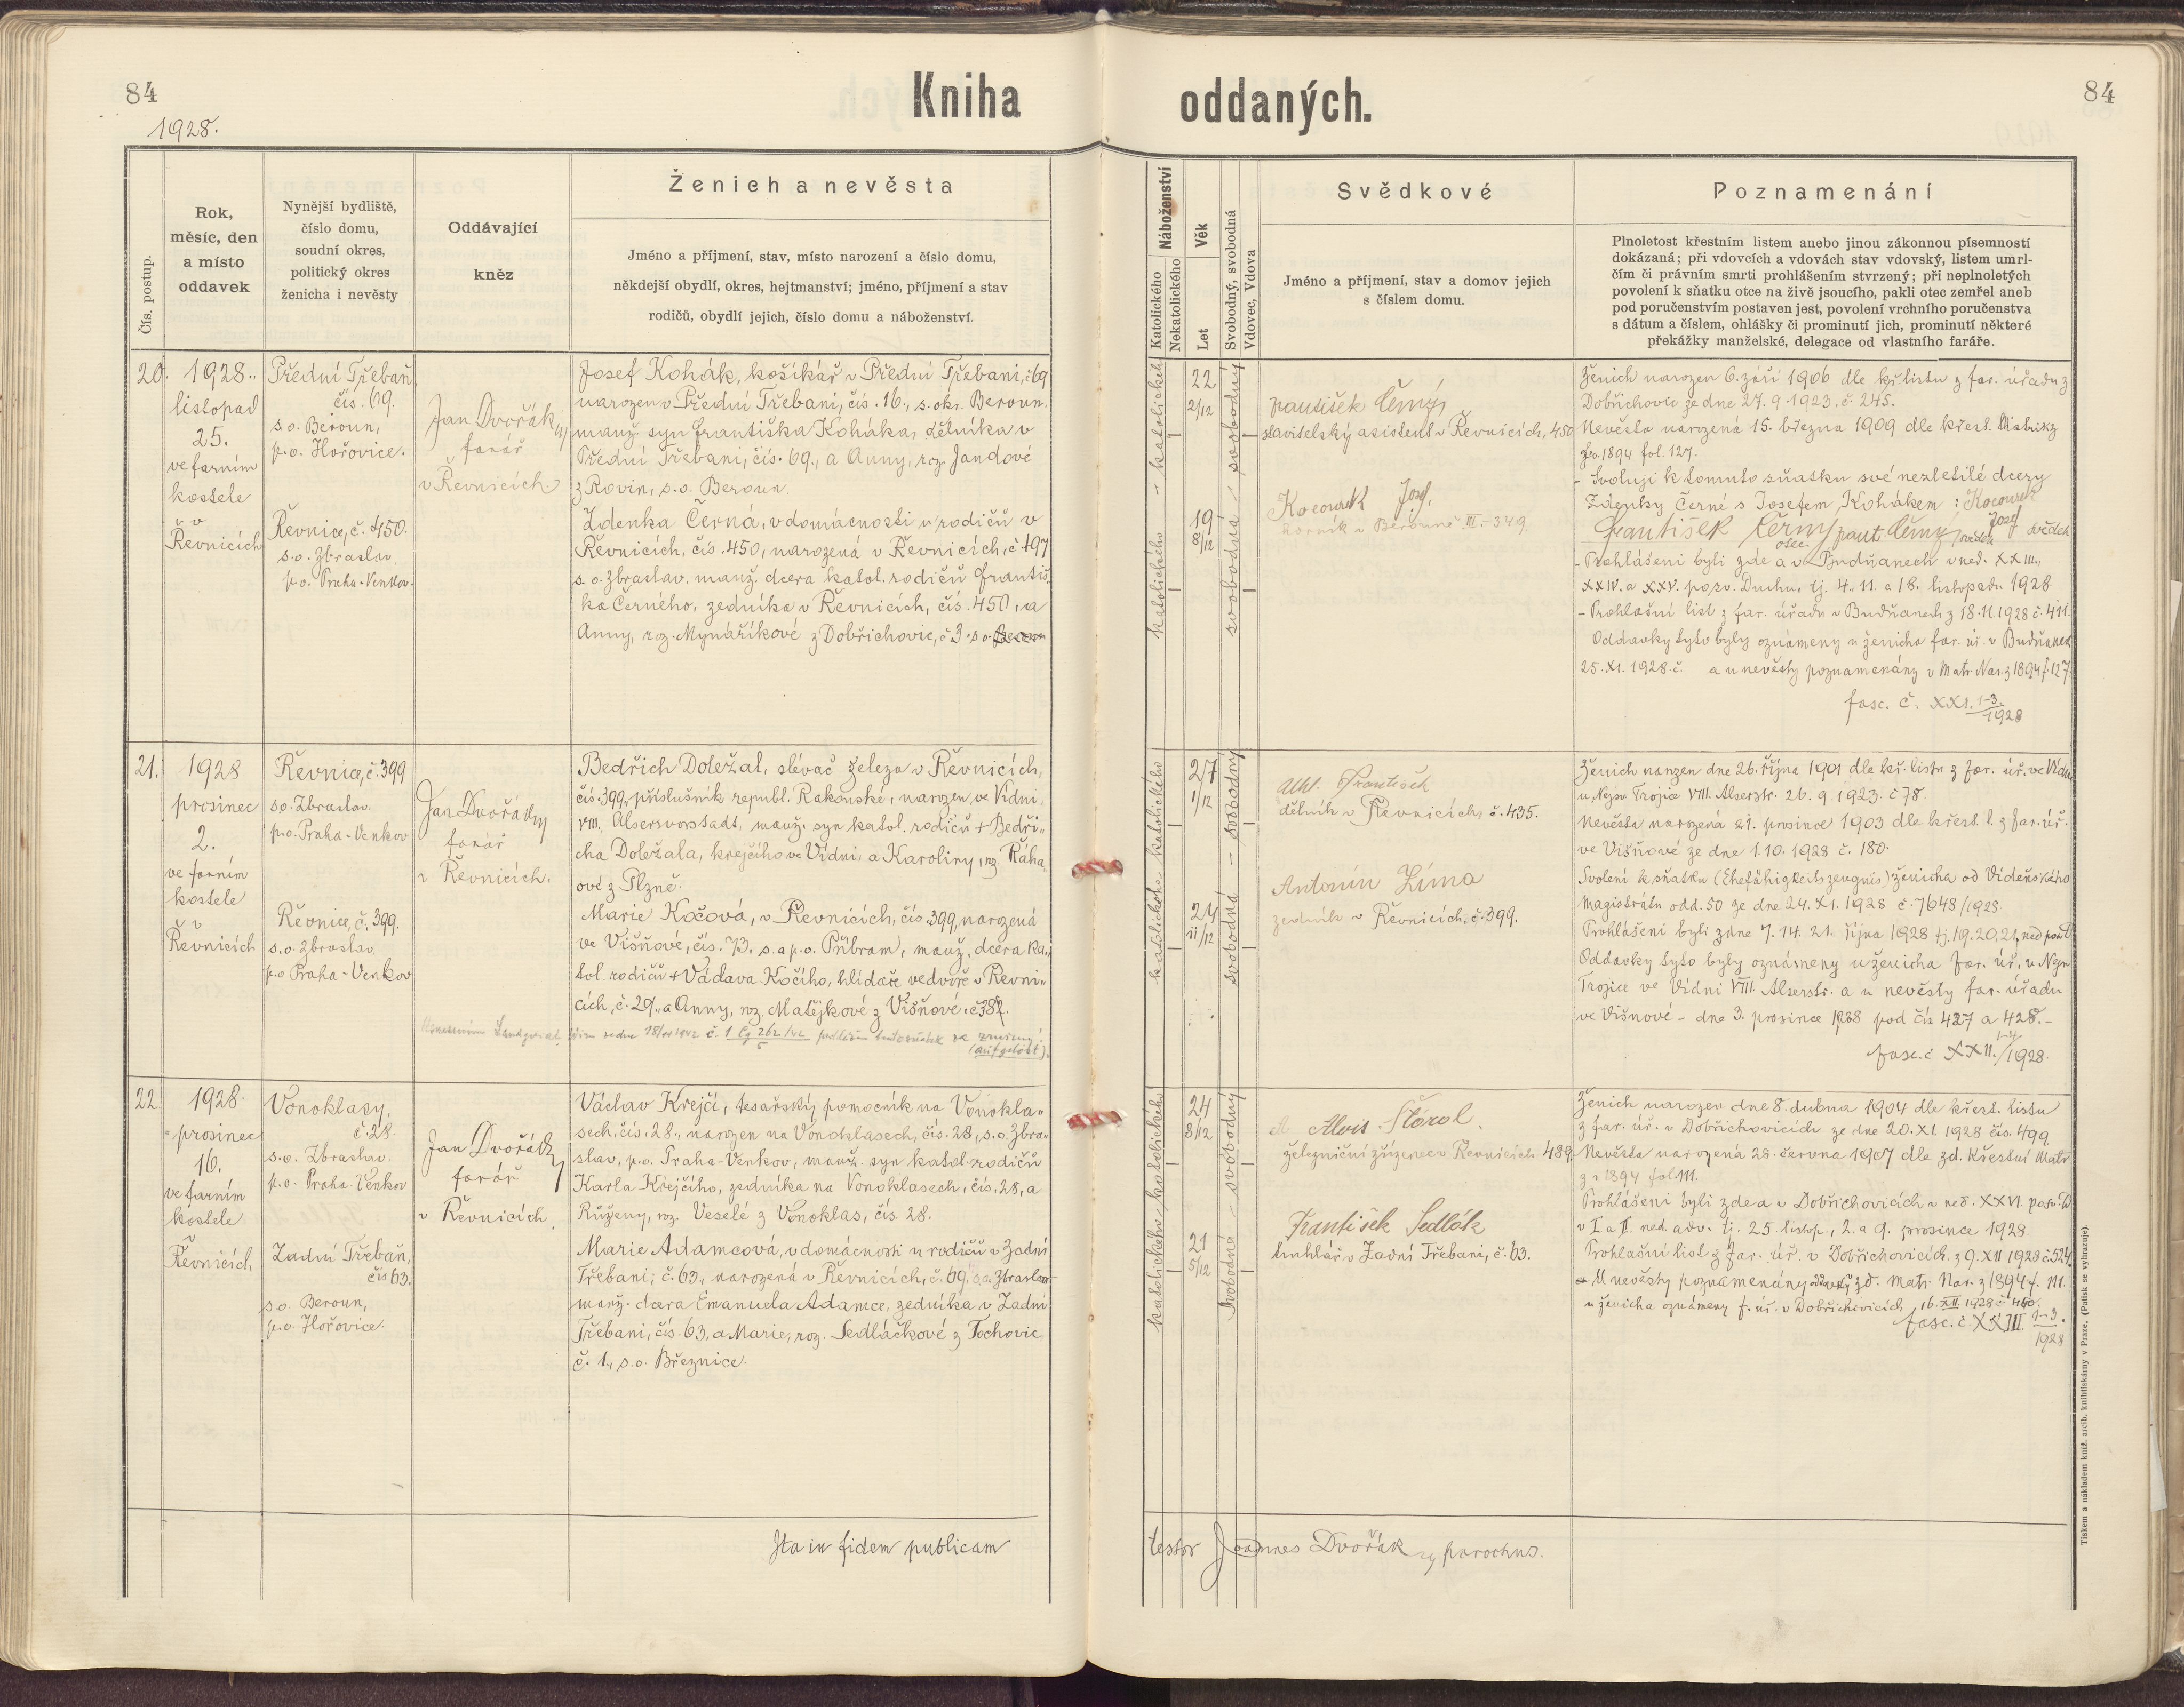 84
Kniha
oddaných.
84
1928.
Čís. postup.
Rok,
měsíc, den
a místo
oddavek
Nynější bydliště,
číslo domu,
soudní okres,
politický okres
ženicha i nevěsty
Oddávající
kněz
Ženich a nevěsta
Jméno a příjmení, stav, místo narození a číslo domu,
někdejší obydlí, okres, hejtmanství; jméno, příjmení a stav
rodičů, obydlí jejich, číslo domu a náboženství.
Náboženství
Katolického
Nekatolického
Věk
Let
Svobodný, svobodná
Vdovec, Vdova
Svědkové
Jméno a příjmení, stav a domov jejich
s číslem domu.
Poznamenání
Plnoletost křestním listem anebo jinou zákonnou písemností
dokázaná; při vdovcích a vdovách stav vdovský, listem umrl-
čím či právním smrti prohlášením stvrzený; při neplnoletých
povolení k sňatku otce na živě jsoucího, pakli otec zemřel aneb
pod poručenstvím postaven jest, povolení vrchního poručenstva
s dátum a číslem, ohlášky či prominutí jich, prominutí některé
překážky manželské, delegace od vlastního faráře.
20.
1928.
listopad
25.
ve farním
kostele
v
Řevnicích
Přední Třebaň
čís. 69.
s.o. Beroun,
p.o. Hořovice.
Řevnice, č. 450.
s.o. Zbraslav
p.o. Praha-Venkov.
Jan Dvořák
farář
v Řevnicích.
Josef Kohák, košíkář v Přední Třebani, č. 69
narozen v Přední Třebani, čís. 16., s. okr. Beroun.
manž. syn Františka Koháka, dělníka v
Přední Třebani, čís. 69., a Anny, roz. Jandové
z Rovin, s.o. Beroun.
Zdenka Černá, v domácnosti u rodičů v
Řevnicích, čís. 450, narozená v Řevnicích, č. 197
s. o. Zbraslav, manž. dcera katol. rodičů Františ-
ka Černého, zedníka v Řevnicích, čís. 450, a
Anny, roz. Mynaříkové z Dobřichovic, č 3. s.o. Beroun
katolického - katolického
22
2/12
19
8/12
svobodná - svobodný
František Černý
stavitelský asistent v Řevnicích, 450
Kocourek Josef,
horník v Berouně III.-349.
Ženich narozen 6. září 1906 dle kř. listu z far. úřadu z
Dobřichovic ze dne 27.9.1923. č. 245.
Nevěsta narozená 15. března 1909 dle křest. Matriky
zr. 1894 fol. 127.
- Svoluji k tomuto sňatku své nezletilé dcery
Zdenky Černé s Josefem Kohákem: Kocourek
František Černý frant. Černý Josef
otec. svědek svědek
- Prohlášeni byli zde a v Budňanech v ned. XXIII.,
XXIV. a XXV. po sv. Duchu, tj. 4. 11. a 18. listopadu 1928
- Prohlašní list z far. úřadu v Budňanech z 18.11.1928 č. 411.
Oddavky tyto byly oznámeny u ženicha far. úř. v Budňanech
25. XI. 1928 č. a u nevěsty poznamenány v Matr. Nar. z 1894 f. 127.
fasc. č. XXI. 1-3.
1928
21.
1928
prosinec
2.
ve farním
kostele
v
Řevnicích
Řevnice, č. 399
s.o. Zbraslav.
p.o. Praha-Venkov
Řevnice, č. 399.
s.o. Zbraslav
p.o Praha-Venkov
Jan Dvořák
farář
v Řevnicích.
Bedřich Doležal, slévač železa v Řevnicích,
čís. 399, příslušník republ. Rakouské, narozen ve Vídni,
VIII. Alservorstadt, manž. syn katol. rodičů + Bedři-
cha Doležala, krejčího ve Vídni, a Karoliny, roz. Ráha-
ové z Plzně.
Marie Kočová, v Řevnicích, čís. 399, narozená
ve Višňové, čís. 73, s. a p.o. Příbram, manž. dcera ka-
tol. rodičů + Václava Kočího, hlídače ve dvoře v Řevni-
cích, č. 29, a Anny, roz. Matějkové z Višňové č. 38.
č. 1 Cg 262/42
(aufgelöst).
katolického katolického
27
1/12
24
11/12
svobodná - svobodný
Uhl. František
dělník v Řevnicích, č. 435.
Antonín Zíma
zedník v Řevnicích, č. 399.
Ženich narozen dne 26. října 1901 dle kř. listu z far. úř. ve Vídni
u Nejsv. Trojice VIII. Alserstr. 26. 9. 1923. č 78.
Nevěsta narozená 21. prosince 1903 dle křest. l. z far. úř.
ve Višňové ze dne 1.10.1928 č. 180.
Svolení k sňatku (Ehefähigkeitszeugnis) ženicha od Vídeňského
magistrátu odd. 50 ze dne 24. XI. 1928 č. 7648/1928.
Prohlášeni byli zdne 7. 14. 21. října 1928 tj. 19. 20, 21. ned po sv. D
Oddavky tyto byly oznámeny u ženicha far. úř. u Nejsv
Trojice ve Vídni VIII. Alserstr. a u nevěsty far. úřadu
ve Višňové - dne 3. prosince 1928 pod čís 427 a 428. -
fasc. č XXII. 1-4/1928.
22
1928.
prosinec
16.
ve farním
kostele
Řevnicích
Vonoklasy,
č. 28.
s.o. Zbraslav.
p.o. Praha-Venkov
Zadní Třebaň,
čís 63.
s.o. Beroun,
p.o. Hořovice.
Jan Dvořák
farář
v Řevnicích.
Václav Krejčí, tesařský pomocník na Vonokla-
sech, čís. 28., narozen na Vonoklasech, čís. 28, s.o. Zbra-
slav, p.o. Praha-Venkov, manž. syn katol. rodičů
Karla Krejčího, zedníka na Vonoklasech, čís. 28, a
Růženy, roz. Veselé z Vonoklas, čís. 28.
Marie Adamcová, v domácnosti u rodičů v Zadní
Třebani, č. 63., narozená v Řevnicích, č. 69, s.o. Zbraslav
manž. dcera Emanuela Adamce, zedníka v Zadní
Třebani, čís. 63, a Marie, roz. Sedláčkové z Tochovic
č. 1., s.o. Březnice.
katolického katolického
24
8/12
21
5/12
svobodná - svobodný
Alois
železniční zřízenec v Řevnicích 489
František Sedlák
truhlář v Zadní Třebani, č. 63.
Ženich narozen dne 8. dubna 1904 dle křest. listu
z far. úř. v Dobřichovicích ze dne 20. XI. 1928 čís. 499
Nevěsta narozená 28. června 1907 dle zd. křestní Matr.
z r 1894 fol. 111.
Prohlášeni byli zde a v Dobřichovicích v ned. XXVI. po sv. D
v I. a II. ned. adv. tj. 25. listop., 2. a 9. prosince 1928.
Prohlašní list z far. úř. v Dobřichovicích, z 9. XII 1928 č. 524.
U nevěsty poznamenány oddavky zd. Matr. Nar. z 1894 f. 111.
u ženicha oznámeny f. úř. v Dobřichovicích, 16. XII. 1928 č 460.
fasc. č. XXIII 1-3.
1928
Ita in fidem publicam
testor Joannes Dvořák parochus.
Tiskem a nákladem kníž. arcib. knihtiskárny v Praze. (Patisk se vyhrazuje).